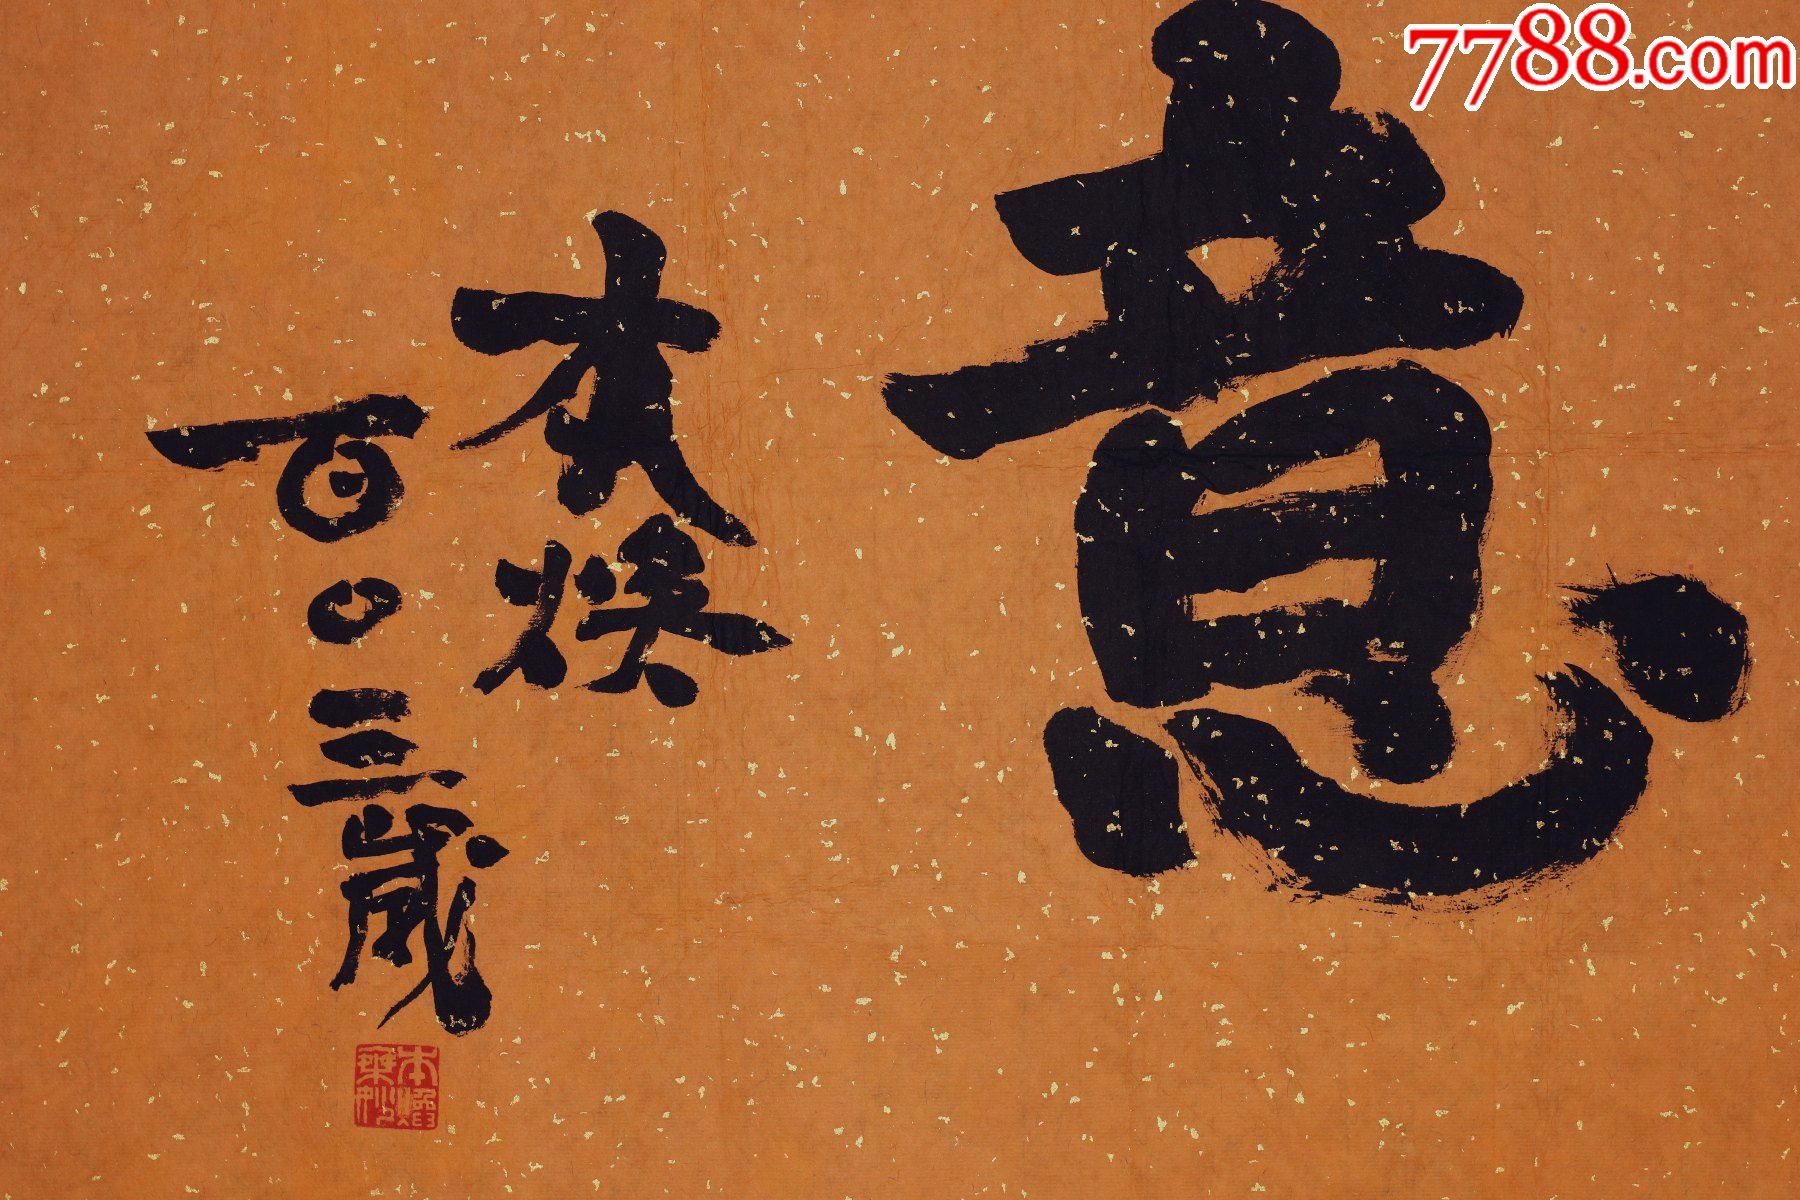 7788.com
意
本焕
百〇三岁